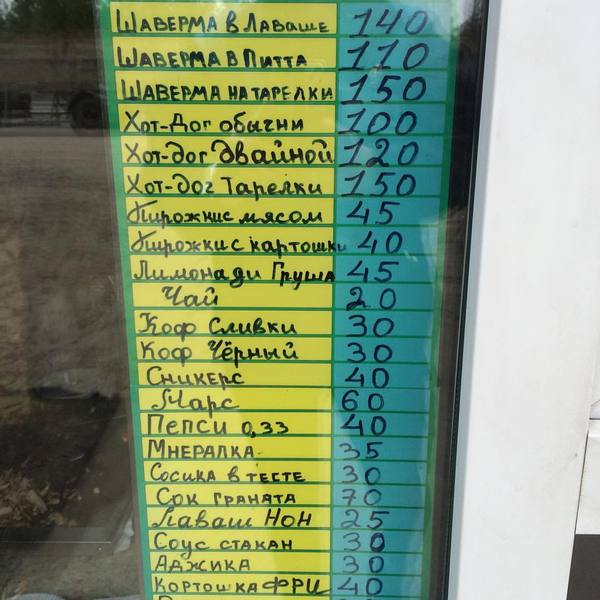 Шаверма в Лаваше 140
Шаверма в Питта 110
Шаверма на тарелки 150
Хот-Дог обычни 100
Хот-дог Двайной 120
Хот-дог Тарелки 150
Пирожкис мясом 45
Пирожки с картошки 40
Лимонади Груша 45
Чай 20
Коф Сливки 30
Коф Чёрный 30
Сникерс 40
Марс 60
Пепси 0,33 40
Мнералка 35
Сосика в тесте 30
Сок граната 70
Лаваш Нон 25
Соус стакан 30
Аджика 30
Кортошка Фри 40